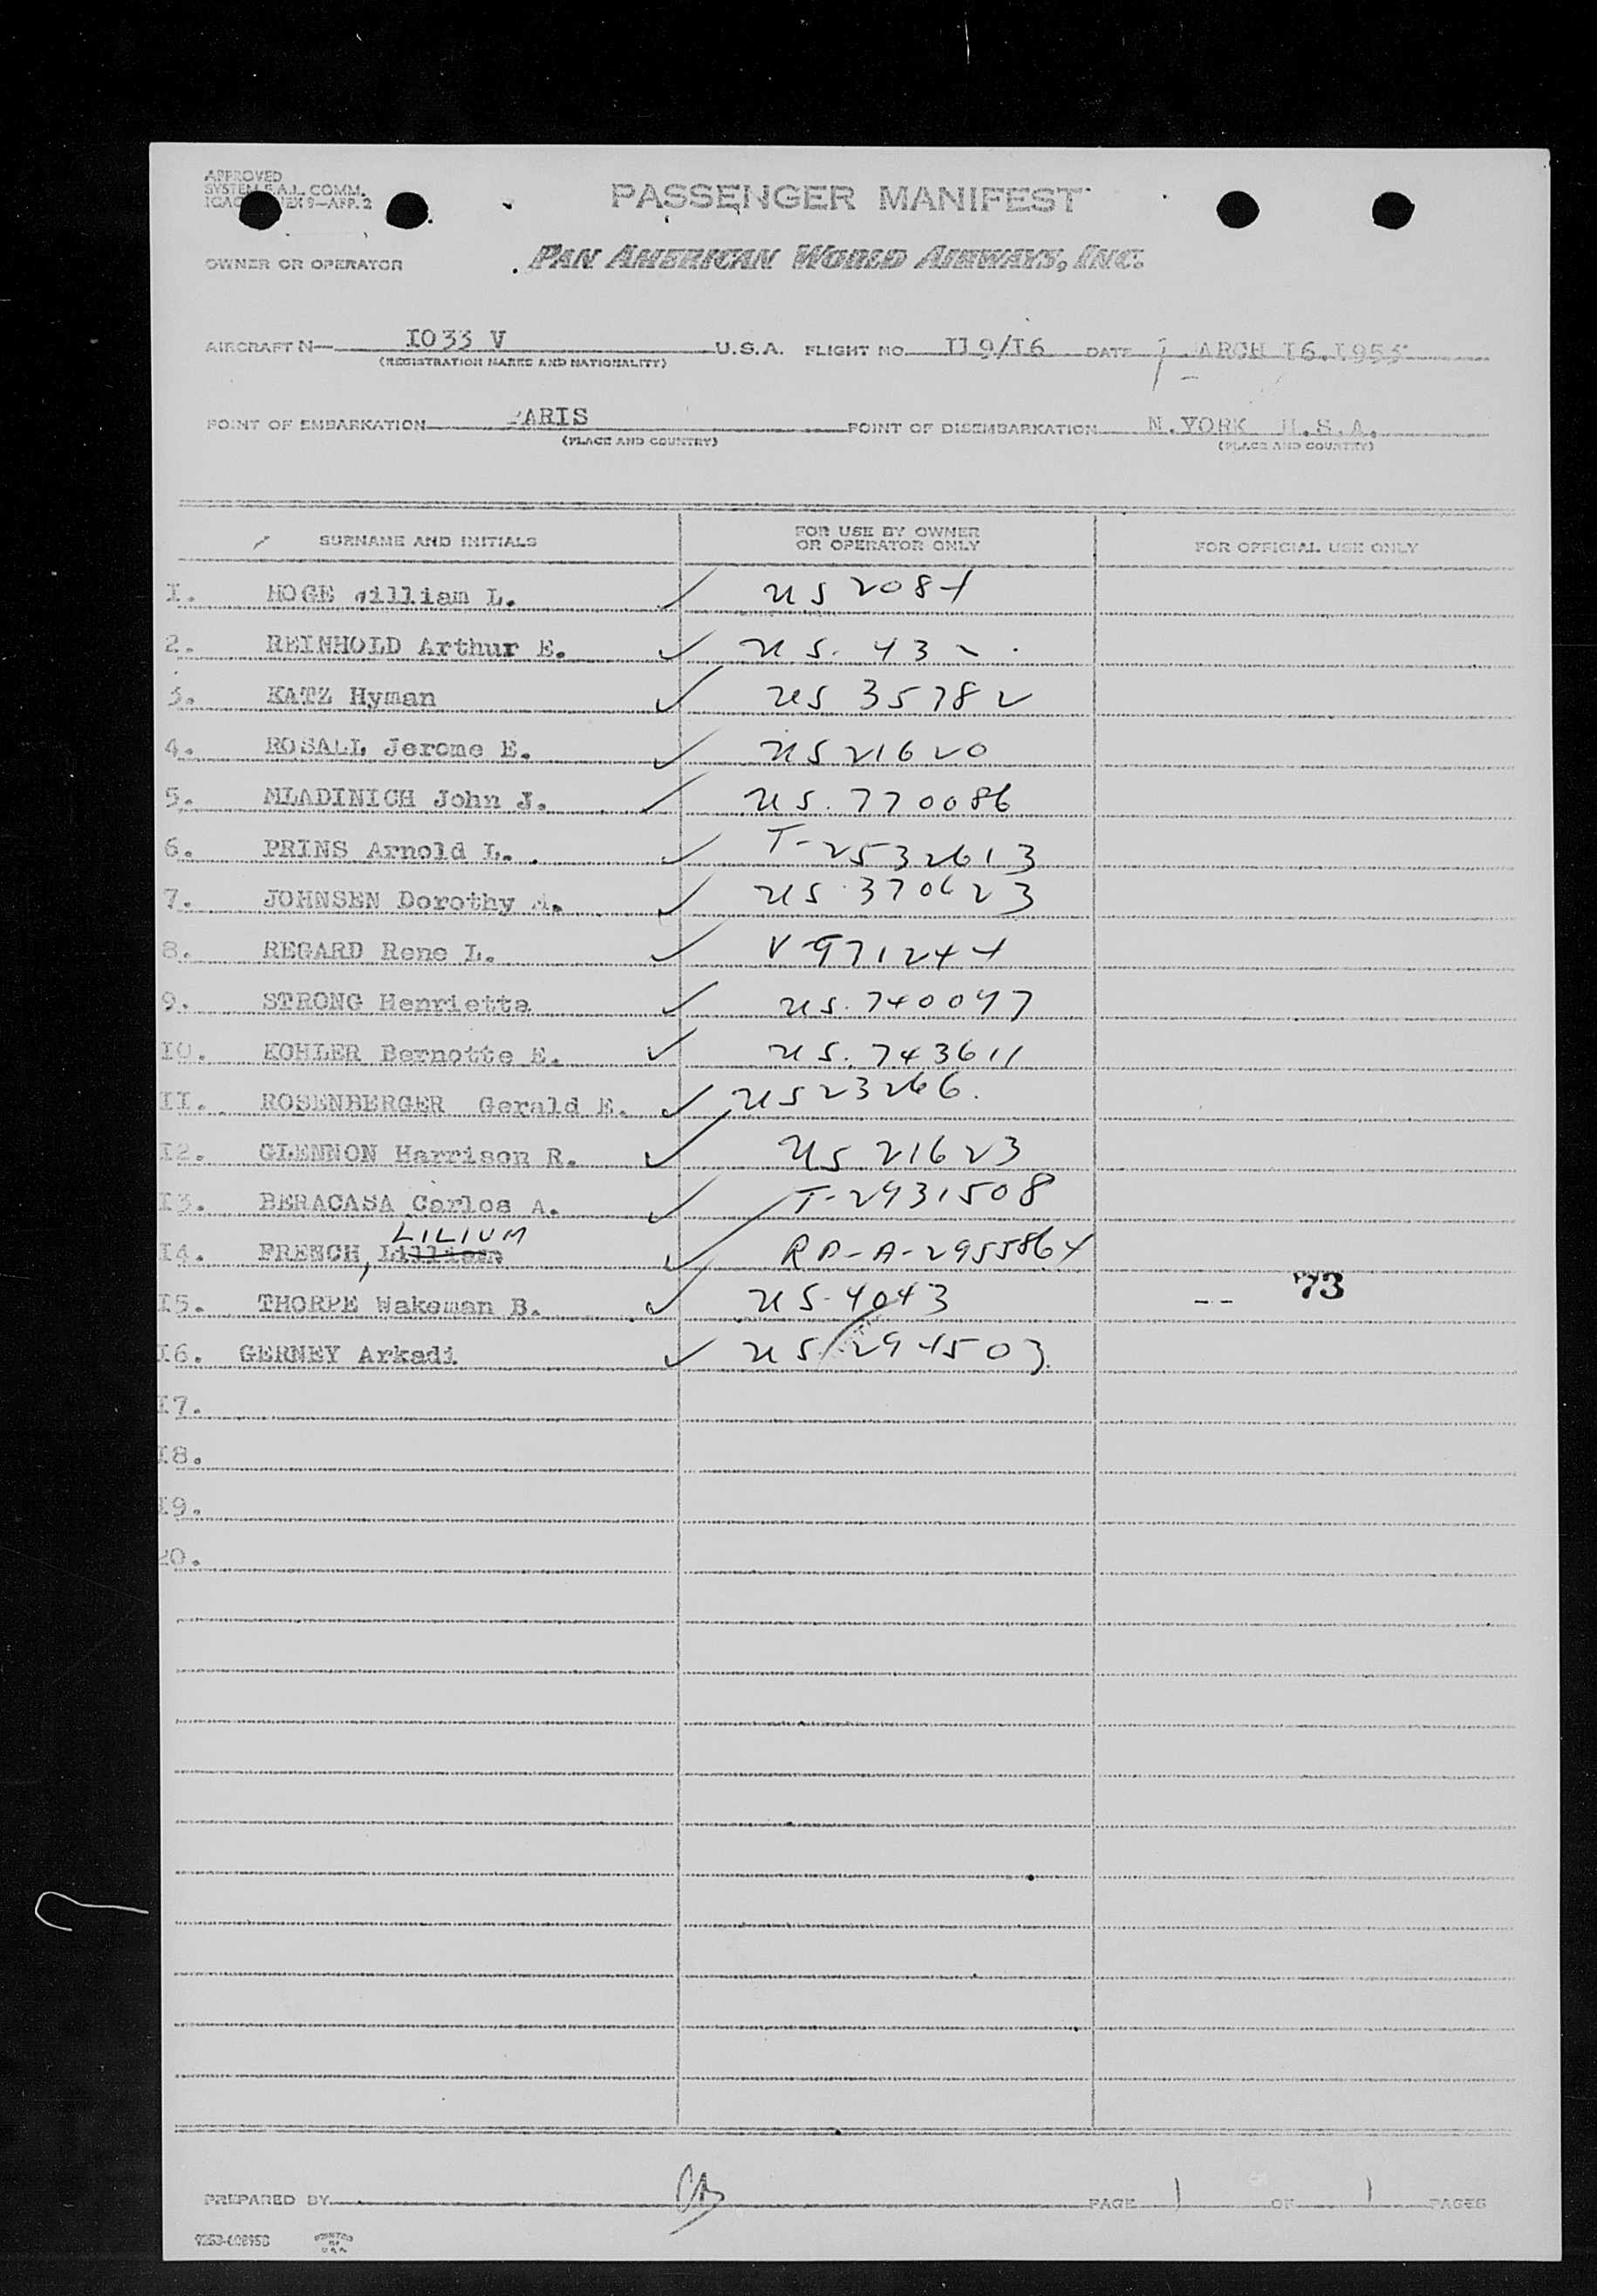 APPROVED
SYSTEM F.A.L. COMM.
ICAO ANNEX 9—APP. 2
PASSENGER MANIFEST
OWNER OR OPERATOR PAN AMERICAN WORLD AIRWAYS, INC.
AIRCRAFT N— I033 V U.S.A. FLIGHT NO. II9/I6 DATE ARCH I6.I955
(REGISTRATION MARKS AND NATIONALITY)
POINT OF EMBARKATION PARIS POINT OF DISEMBARKATION N.YORK U.S.A.
(PLACE AND COUNTRY) (PLACE AND COUNTRY)
SURNAME AND INITIALS FOR USE BY OWNER OR OPERATOR ONLY FOR OFFICIAL USE ONLY
I. HOGE William L. ✓ US 2084
2. REINHOLD Arthur E. ✓ US. 432
3. KATZ Hyman ✓ US 35782
4. ROSALL Jerome E. ✓ US 21620
5. MLADINICH John J. ✓ US. 770086
6. PRINS Arnold L. ✓ T-2532613
7. JOHNSEN Dorothy A. ✓ US. 370623
8. REGARD Rene L. ✓ V-971244
9. STRONG Henrietta ✓ US. 740047
I0. KOHLER Bernotte E. ✓ US. 743611
II. ROSENBERGER Gerald E. ✓ US 23266.
I2. GLENNON Harrison R. ✓ US 21623
I3. BERACASA Carlos A. ✓ T-2931508
LILIUM
I4. FRENCH, Lilliam ✓ RP-A-2955864
73
I5. THORPE Wakeman B. ✓ US-4043
I6. GERNEY Arkadi ✓ US. 294503
I7.
I8.
I9.
20.
PREPARED BY PAGE 1 OF 1 PAGES
PRINTED
IN
U.S.A.